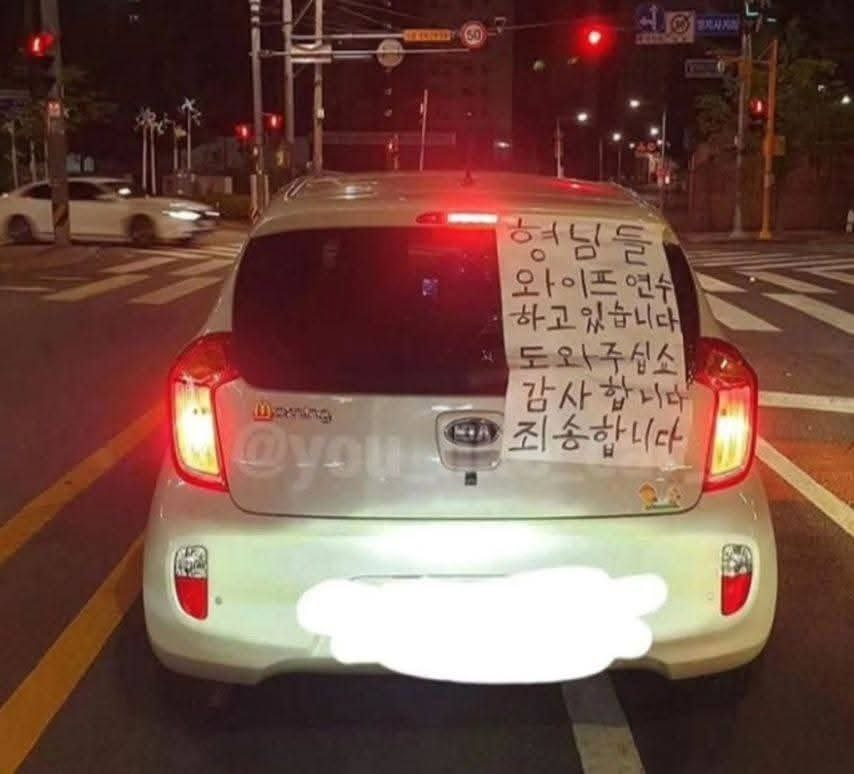 50
형님들
와이프연수
하고있습니다
도와주십쇼
감사합니다
죄송합니다
Morning
KIA